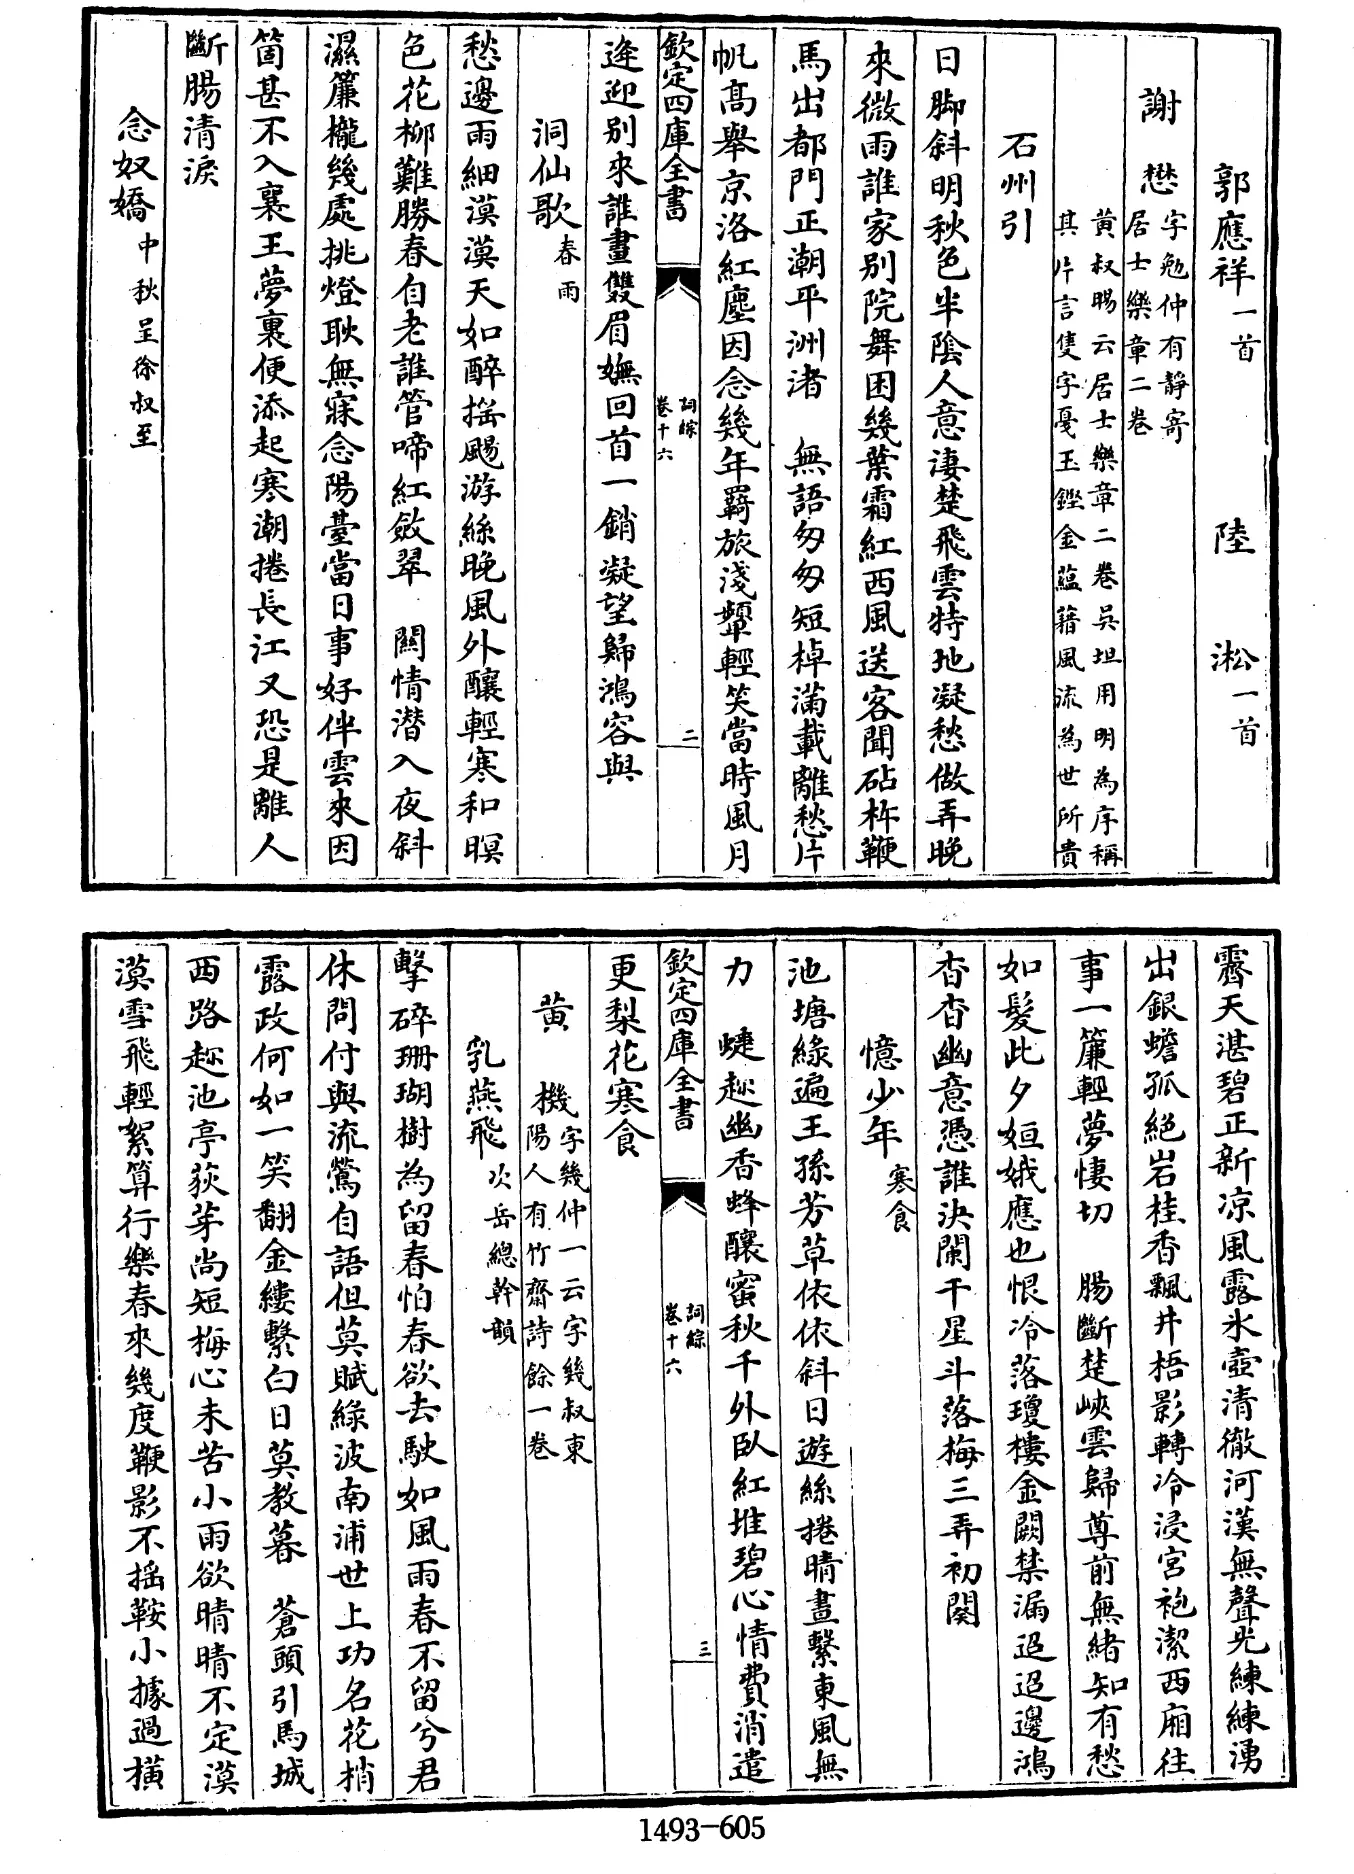 郭應祥一首　陸　淞一首
謝　懋字勉仲有靜寄居士樂章二卷
黄叔暘云居士樂章二卷吳坦用明為序稱
其片言隻字戞玉鏗金藴藉風流為世所貴
石州引
日脚斜明秋色半陰人意淒楚飛雲特地凝愁做弄晚
來微雨誰家别院舞困幾葉霜紅西風送客聞砧杵鞭
馬出都門正潮平洲渚　無語匆匆短棹滿載離愁片
帆髙舉京洛紅塵因念幾年羇旅淺顰輕笑當時風月
欽定四庫全書　詞綜卷十六　二
逄迎别來誰畫雙眉嫵回首一銷凝望歸鴻容與
洞仙歌春雨
愁邊雨細漠漠天如醉揺颺游絲晚風外釀輕寒和暝
色花柳難勝春自老誰管啼紅斂翠　關情潛入夜斜
濕簾櫳幾處挑燈耿無寐念陽臺當日事好伴雲來因
箇甚不入襄王夢裏便添起寒潮捲長江又恐是離人
斷腸清淚
念奴嬌中秋呈徐叔至
霽天湛碧正新凉風露氷壺清徹河漢無聲光練練湧
出銀蟾孤絶岩桂香飄井梧影轉冷浸宫袍潔西廂往
事一簾輕夢悽切　腸斷楚峽雲歸尊前無緒知有愁
如髮此夕姮娥應也恨冷落瓊樓金闕禁漏迢迢邊鴻
杳杳幽意憑誰決闌干星斗落梅三弄初闋
憶少年寒食
池塘綠遍王孫芳草依依斜日遊絲捲晴晝繫東風無
力　蜨趂幽香蜂釀蜜秋千外臥紅堆碧心情費消遣
欽定四庫全書　詞綜卷十六　三
更梨花寒食
黄　機字幾仲一云字幾叔東陽人有竹齋詩餘一卷
乳燕飛次岳總幹韻
擊碎珊瑚樹為留春怕春欲去駛如風雨春不留兮君
休問付與流鶯自語但莫賦綠波南浦世上功名花梢
露政何如一笑翻金縷繫白日莫教暮　蒼頭引馬城
西路趂池亭荻芽尚短梅心未苦小雨欲晴晴不定漠
漠雪飛輕絮算行樂春來幾度鞭影不揺鞍小據過横
1493-605